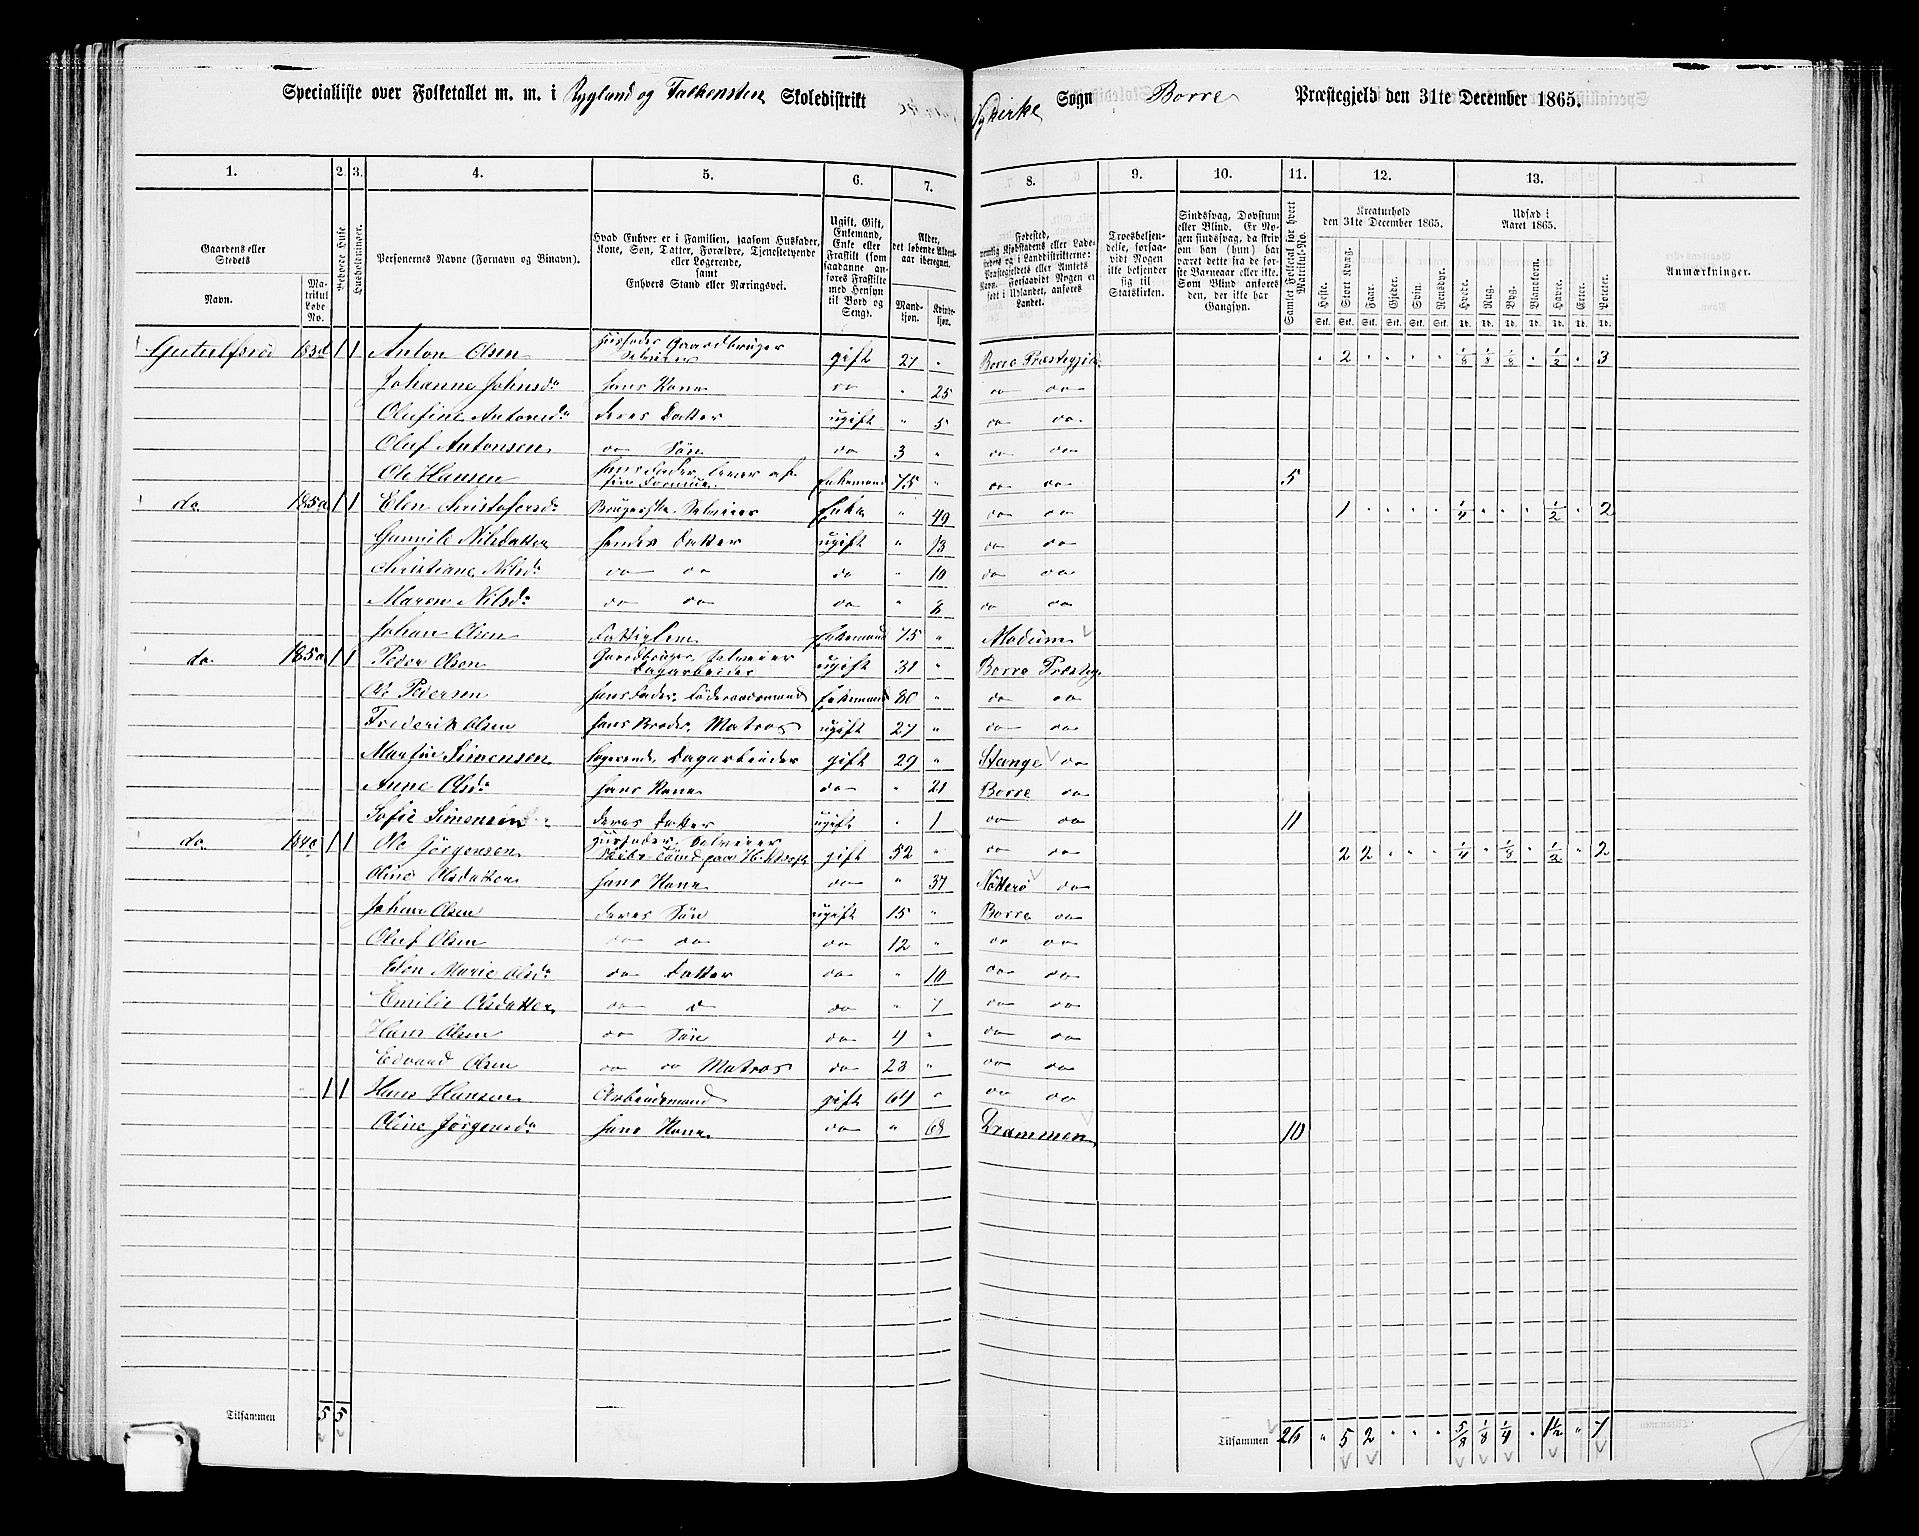 Specialliste over Folketallet m. m. i Rygland og Falkensten Skoledistrikt Nykirke Sogn Borre Præstegjeld den 31te December 1865.
1. 2. 3. 4. 5. 6. 7. 8. 9. 10. 11. 12. 13.
Gaardens eller Stedets
Navn.
Matrikul Løbe No.
Beboede Huse
Husholdninger.
Personernes Navne (Fornavn og Binavn).
Hvad Enhver er i Familien, saasom Husfader, Kone, Søn, Datter, Forældre, Tjenestetyende eller Logerende,
samt
Enhvers Stand eller Næringsvei.
Ugift, Gift, Enkemand, Enke eller Fraskilt (som saadanne anføres Fraskilte med Hensyn til Bord og Seng).
Alder, det løbende Alders-aar iberegnet.
Mandkjøn. Kvindekjøn.
Troesbekjendelse, forsaavidt Nogen ikke bekjender sig til Statskirken.
Sindssvag, Døvstum eller Blind. Er Nogen sindssvag, da skriv om han (hun) har været det fra de første Barneaar eller ikke. Som Blind anføres den, der ikke har Gangsyn.
Samlet Folketal for hvert Matrikul-No.
Kreaturhold den 31te December 1865.
Heste. Stort Kvæg. Faar. Gjeder. Svin. Rensdyr.
Udsæd i Aaret 1865.
Hvede. Rug. Byg. Blandkorn. Havre. Erter. Poteter.
Anmærkninger.
183d 1 1 Anton Olsen Husfader Gaardbruger Selveier gift 27 " Borre Præstegjeld " 2 " " " " 1/8 1/8 1/8 " 1/2 " 3
Johanne Johnsda hans Kone do " 25 do do
Olufine Antonsda deres Datter ugift " 5 do do
Oluf Antonsen do Søn do 3 " do do
Ole Hansen hans Fader, lever af sin Formue Enkemand 75 " do do 5
do 185a 1 1 Elen Christofersda Selveier Enke " 49 do do 1 " " " " 1/4 " " " 1/2 " 2
Gunnild Nilsdatter hendes Datter ugift " 13 do do
Christiane Nilsda do do do " 10 do do
Maren Nilsda do do do " do do
Johan Olsen Fattiglem Enkemand 75 " Modum
do 185a 1 1 Peder Olsen Gaardbruger, Selveier Dagarbeider ugift 31 " Borre Præsteg.
Ole Pedersen hans Fader, Føderaadsmand Enkemand " do do
Frederik Olsen hans Broder, Matros ugift 27 " do do
Martin Simensen Logerende, Dagarbeider gift 29 " Stange do
Anne Olsda hans Kone do " 21 Borre do
Sofie Simensen deres Datter ugift " 1 do do 11
do 184c 1 1 Ole Jørgensen Husfader, Selveier gift 52 " do do 2 2 " " " 1/4 " 1/8 " 1/2 " 2
Oline Olsdatter hans Kone do " 37 Nøtterø do
Johan Olsen deres Søn ugift 15 " Borre do
Oluf Olsen do do do 12 " do do
Elen Marie Olsda do Datter do " 10 do do
Emilie Olsdatter do d do " 7 do do
Hans Olsen do Søn do 4 " do do
Edvard Olsen do do Matros do 23 " do do
1 1 Hans Hansen Arbeidsmand gift 64 " do do
Oline Jørgensda hans Kone do " 68 Drammen 10
Tilsammen 5 5
Tilsammen 26 " 5 2 " " " 5/8 1/8 1/4 " 1 1/2 " 7